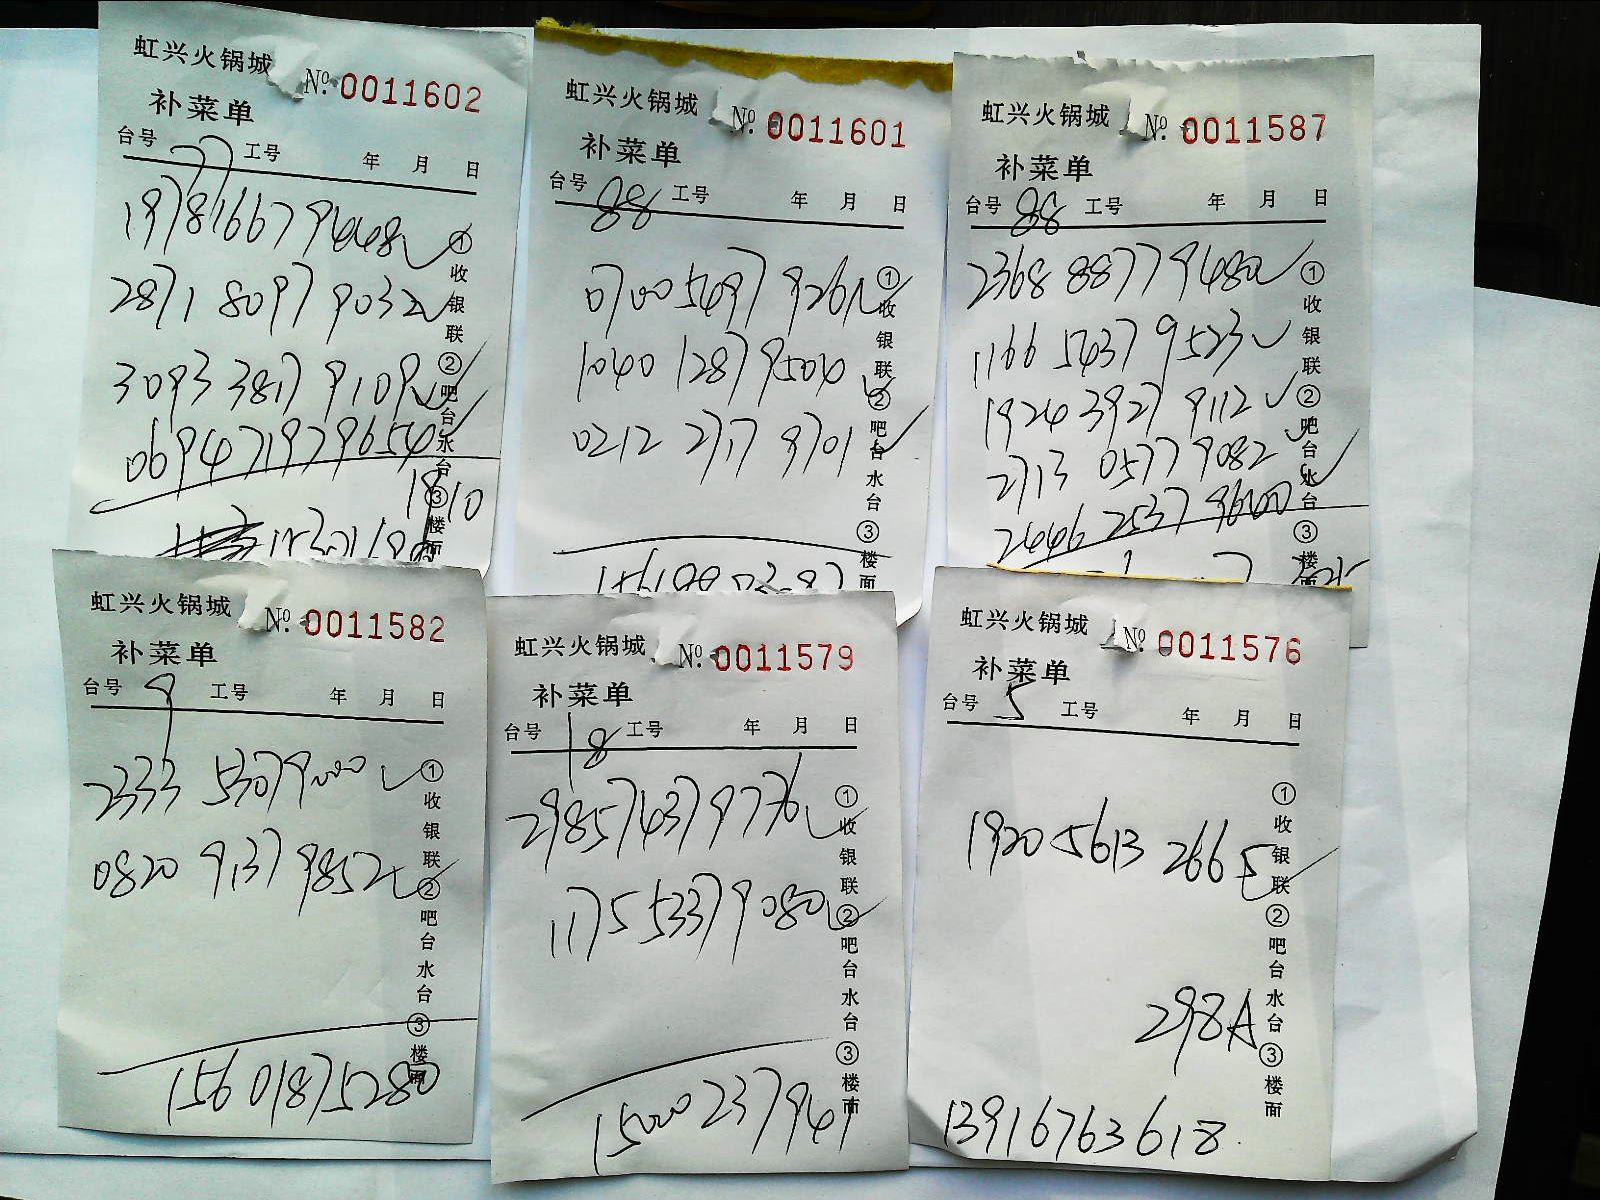 虹兴火锅城 No. 0011602
补菜单
台号 77 工号 年 月 日
197816679448
2871 8097 9032
3093 3817 9109
069471979654
1910
①收银联②吧台水台③楼面
虹兴火锅城 No. 0011601
补菜单
台号 88 工号 年 月 日
0700 5497 9261
1040 1287 9504
0212 2717 9701
①收银联②吧台水台③楼面
虹兴火锅城 No. 0011587
补菜单
台号 88 工号 年 月 日
2368 8877 9480
1166 5437 9523
1924 3927 9112
2713 0577 9082
2446 2537 9600
①收银联②吧台水台③楼面
虹兴火锅城 No. 0011582
补菜单
台号 9 工号 年 月 日
2333 5307 9000
0820 9137 9852
15601875280
①收银联②吧台水台③楼面
虹兴火锅城 No. 0011579
补菜单
台号 18 工号 年 月 日
298574379776
1175 5337 9080
15000237941
①收银联②吧台水台③楼面
虹兴火锅城 No. 0011576
补菜单
台号 5 工号 年 月 日
1920 5613 2665
298A
13916763618
①收银联②吧台水台③楼面